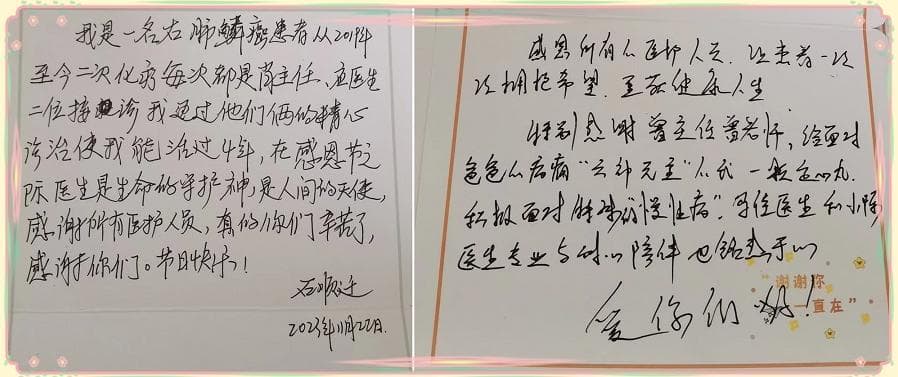 我是一名右肺鳞癌患者从2019年
至今二次化疗每次都是肖主任、应医生
二位接诊我通过他们俩的精心
诊治使我能活过4年,在感恩节之
际医生是生命的守护神,是人间的天使,
感谢所有医护人员,真的你们辛苦了,
感谢你们。节日快乐!
2023年11月22日.
感恩所有医护人员.让患者一次
次拥抱希望.重获健康人生
特别感谢曾主任曾老师,给面对
癌病痛"六神无主"的我一颗定心丸.
积极面对肿瘤"慢性病".住医生和小陈
医生专业与耐心陪伴也铭感于心
"谢谢你
一直在"
爱你们哟!